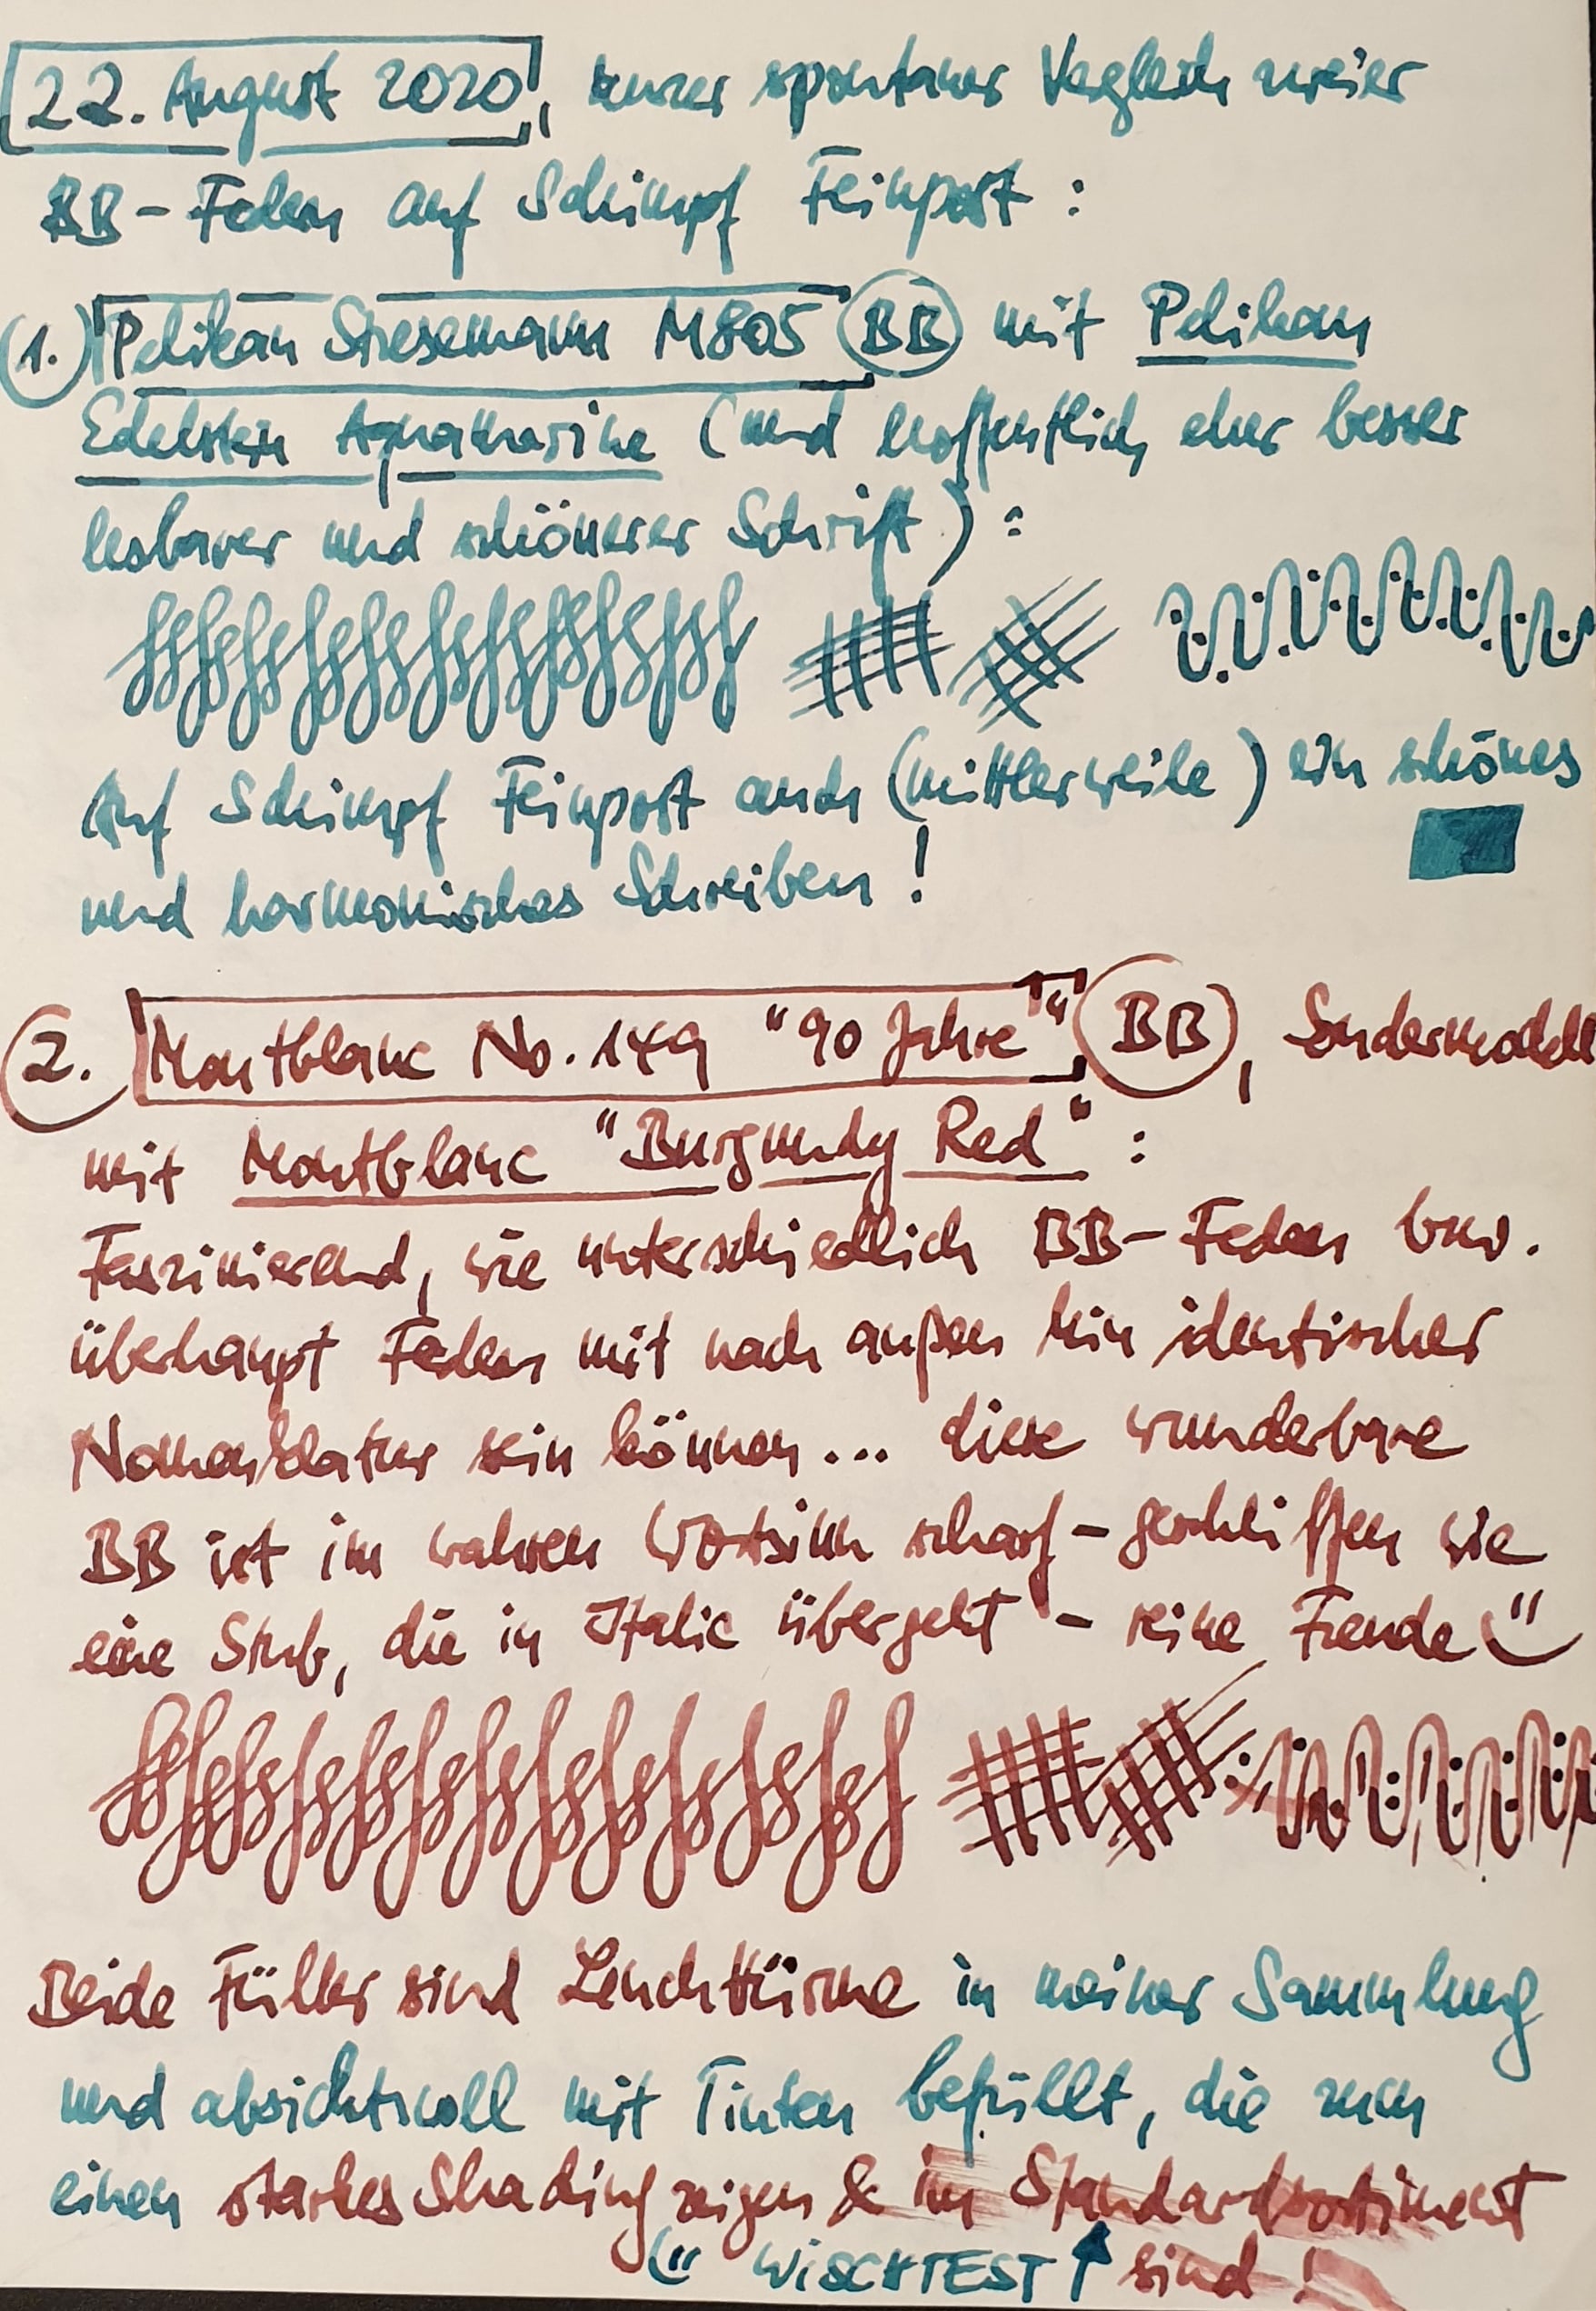 22. August 2020, kurzer spontaner Vergleich zweier
BB-Federn auf Schimpf Feinpost:
1. Pelikan Stresemann M805 BB mit Pelikan
Edelstein Aquamarine (und hoffentlich eher besser
lesbarer und schönerer Schrift):
Auf Schimpf Feinpost auch (mittlerweile) ein schönes
und harmonisches Schreiben!
2. Montblanc No. 149 "90 Jahre" BB, Sondermodell
mit Montblanc "Burgundy Red":
Faszinierend, wie unterschiedlich BB-Federn bzw.
überhaupt Federn mit nach außen hin identischer
Nomenklatur sein können... diese wunderbare
BB ist im wahren Wortsinn scharf-geschliffen wie
eine Stub, die in Italic übergeht - reine Freude
Beide Füller sind Leuchttürme in meiner Sammlung
und absichtsvoll mit Tinten befüllt, die zum
einen starkes Shading zeigen & im Standardsortiment
WISCHTEST ↑ sind!